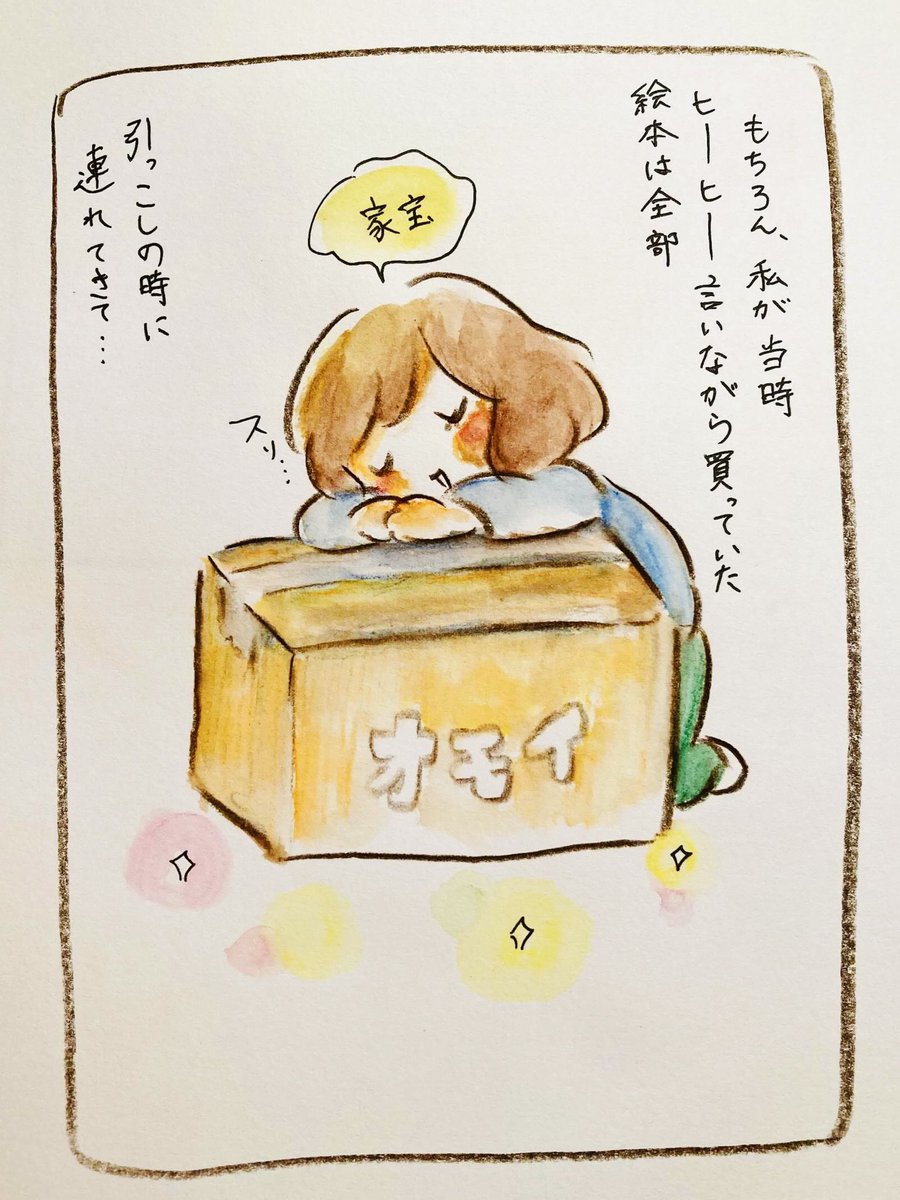 もちろん、私が当時
ヒーヒー言いながら買っていた
絵本は全部
家宝
スリ…
オモイ
引っこしの時に
連れてきて…